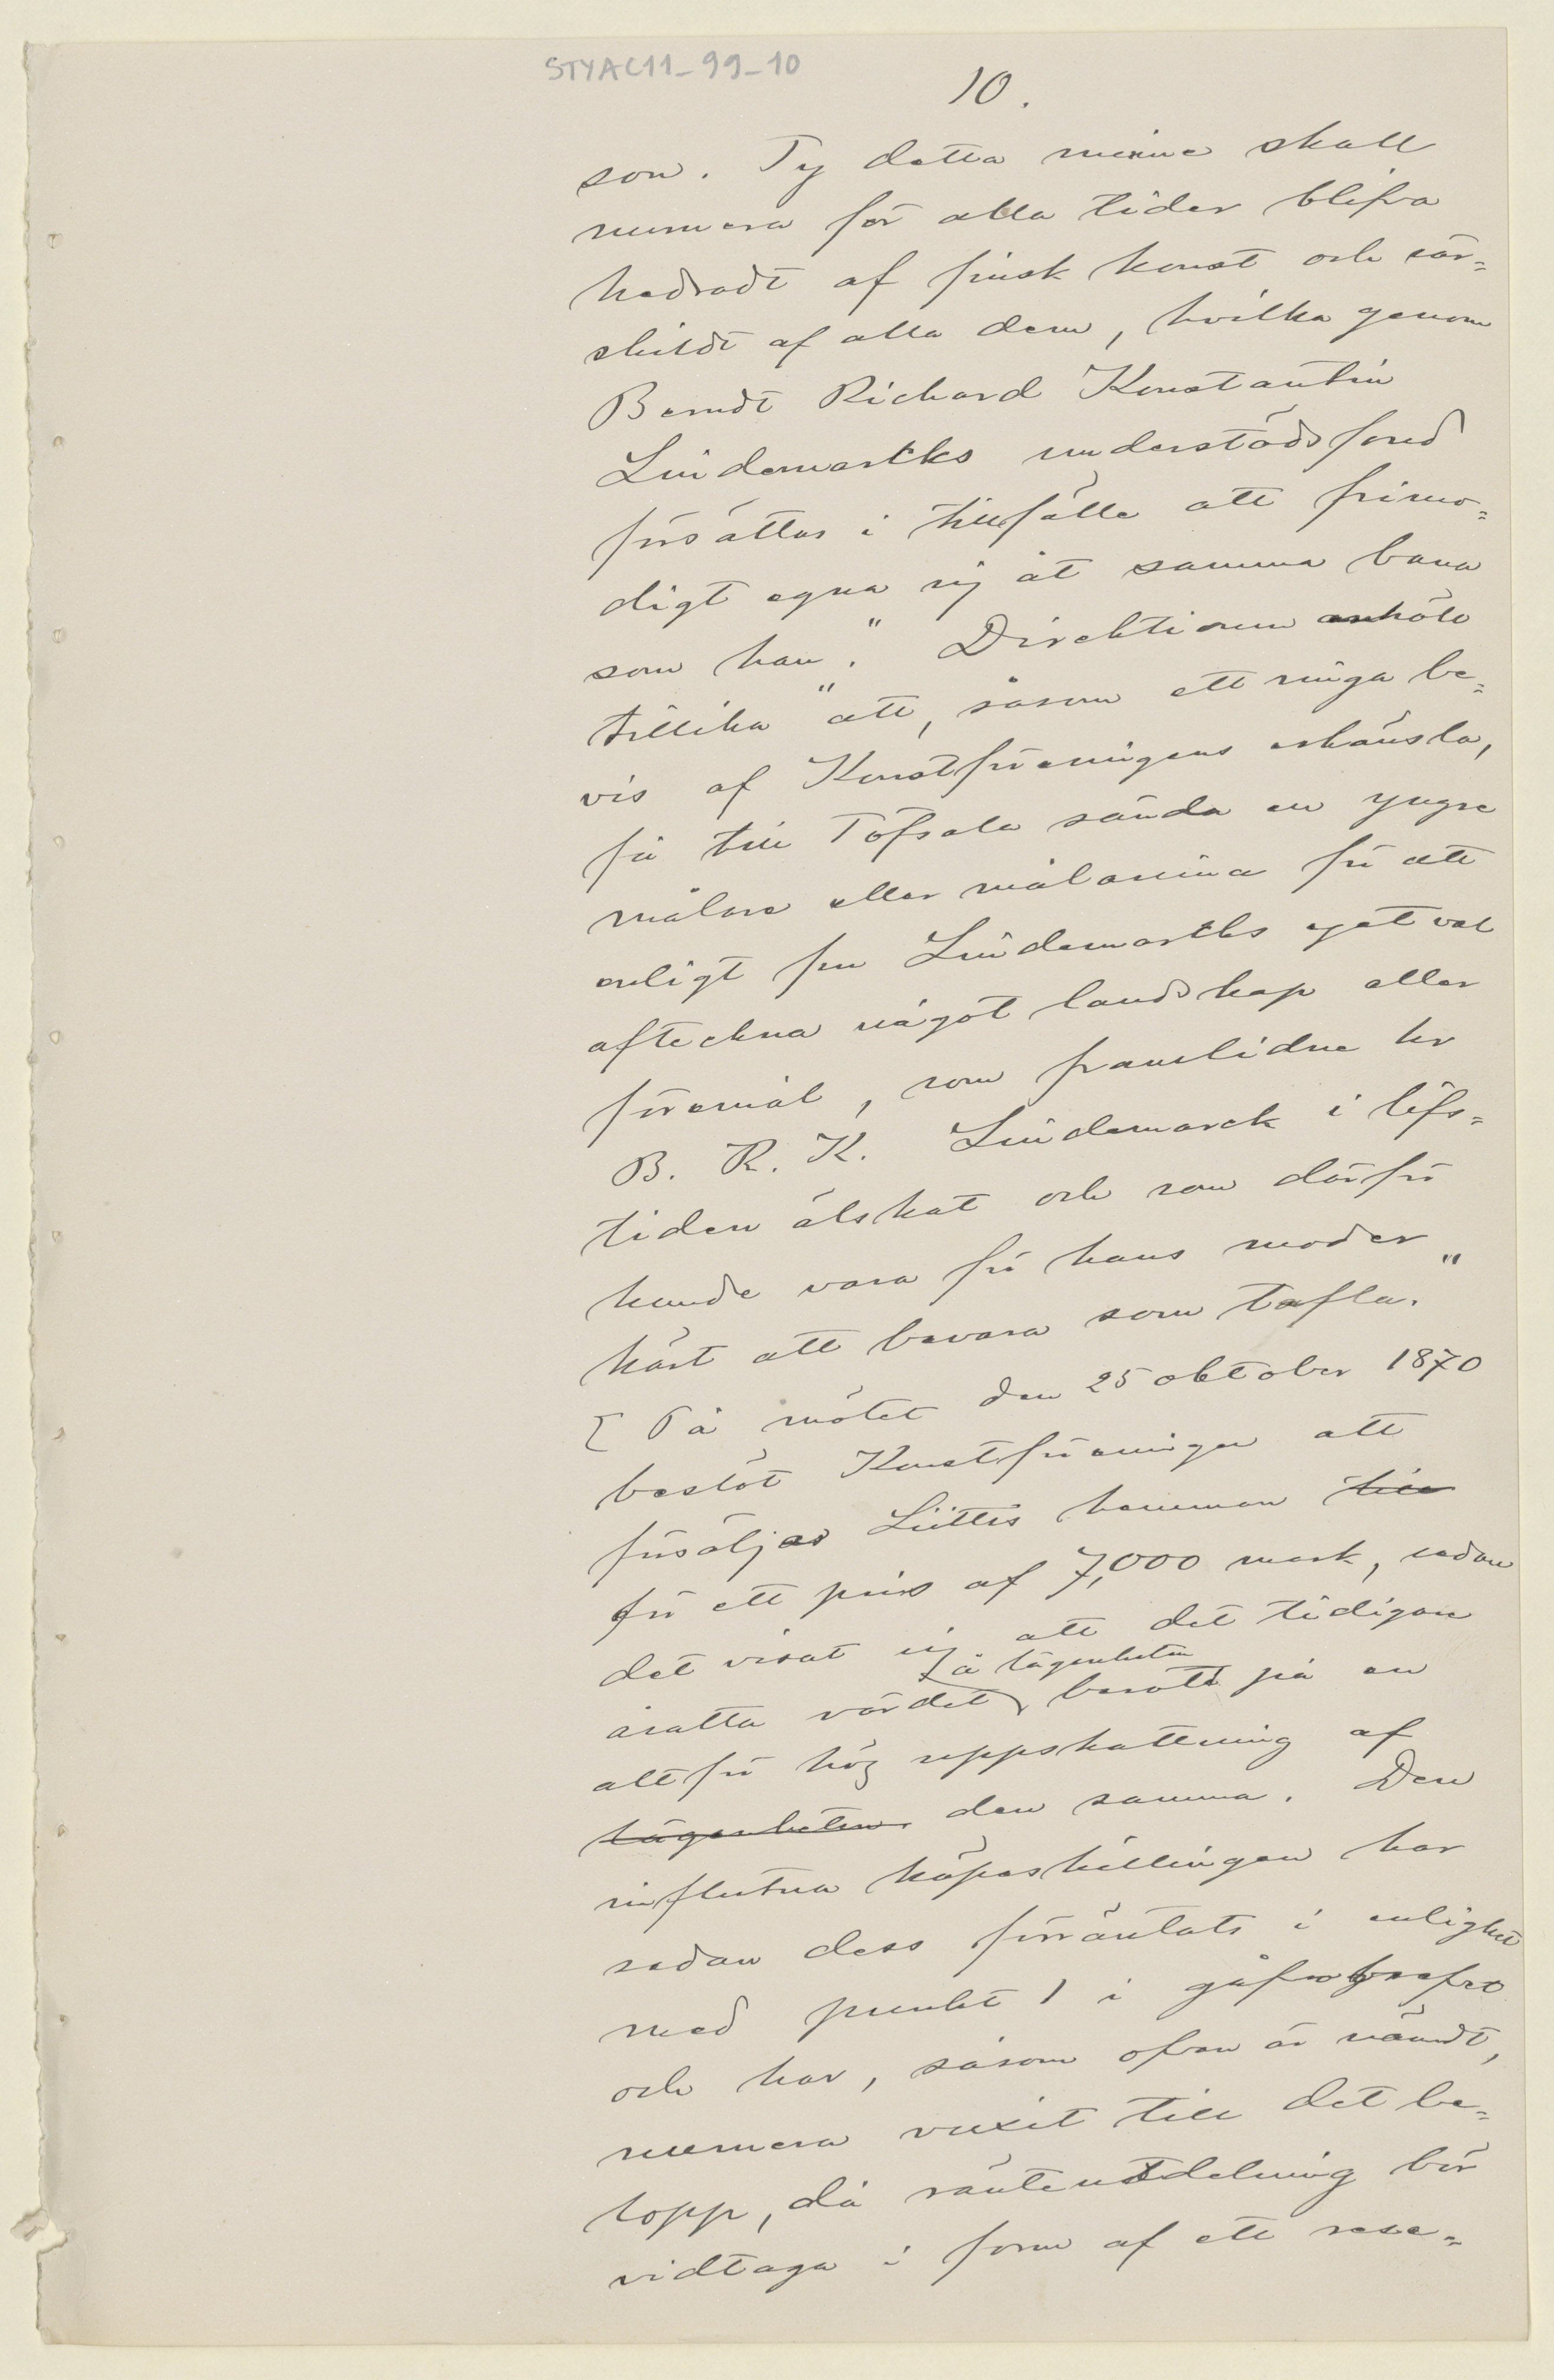 STYAC11_99_10
10.
son. Ty detta minne skall
numera för alla tider blifva
hedradt af finsk konst och sär=
skildt af alla dem, hvilka genom
Berndt Richard Konstantin
Lindemarcks understödsfond
försättas i tillfälle att frimo=
digt egna sig åt samma bana
som han." Direktionen anhöll
tillika "att, såsom ett ringa be=
vis af Konstföreningens erkänsla,
få till Töfsala sända en yngre
målare eller målarinna för att
enligt fru Lindemarcks eget val
afteckna något landskap eller
föremål, som framlidne hr
B. R. K. Lindemarck i lifs=
tiden älskat och som därför
kunde vara för hans moder
kärt att bevara som tafla."
[ På mötet den 25 oktober 1870
beslöt Konstföreningen att
försälja Liittis hemman till
för ett pris af 7,000 mark, sedan
det visat sig att det tidigare
å lägenheten
åsatta värdet berott på en
allt för hög uppskattning af
lägenheten den samma. Den
influtna köpeskillingen har
sedan dess förräntats i enlighet
med punkt 1 i gåfvobrefvet
och har, såsom ofvan är nämndt,
numera vuxit till det be=
lopp, då ränteutdelning bör
vidtaga i form af ett rese=